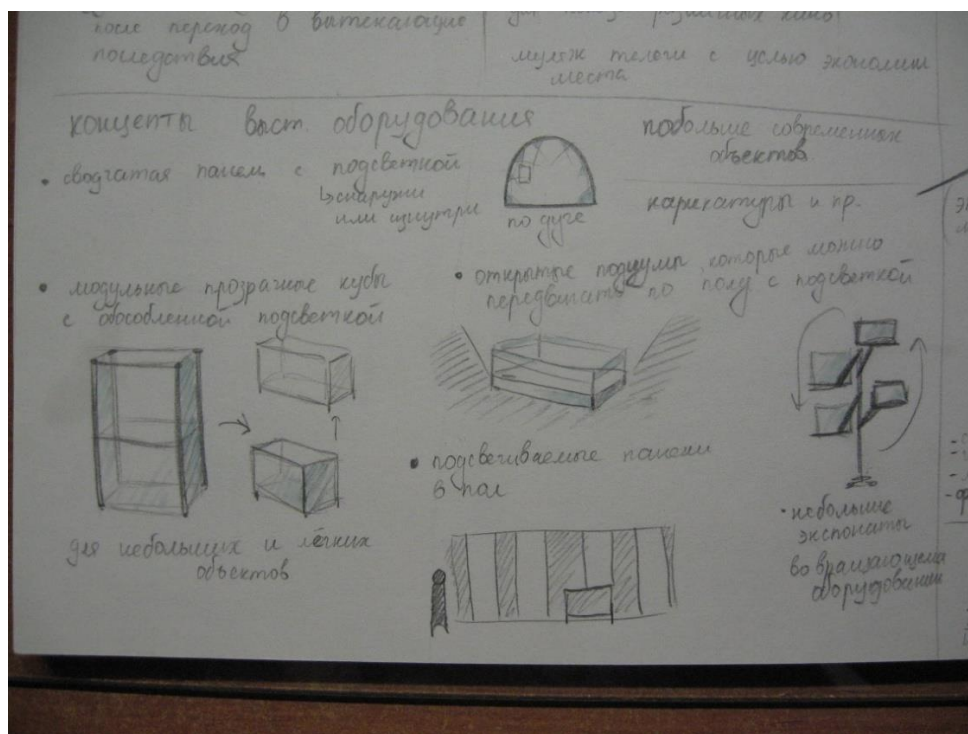 после переход в вытекающие
последствия
с целью экономии
места
концепты выст. оборудования
• сводчатая панель с подсветкой
↳ снаружи
или изнутри
по дуге
побольше современных
объектов
карикатуры и пр.
• модульные прозрачные кубы
с обособленной подсветкой
для небольших и лёгких
объектов
• открытые подиумы, которые можно
передвигать по полу с подсветкой
• подсвечиваемые панели
в пол
• небольшие
экспонаты
во вращающемся
оборудовании